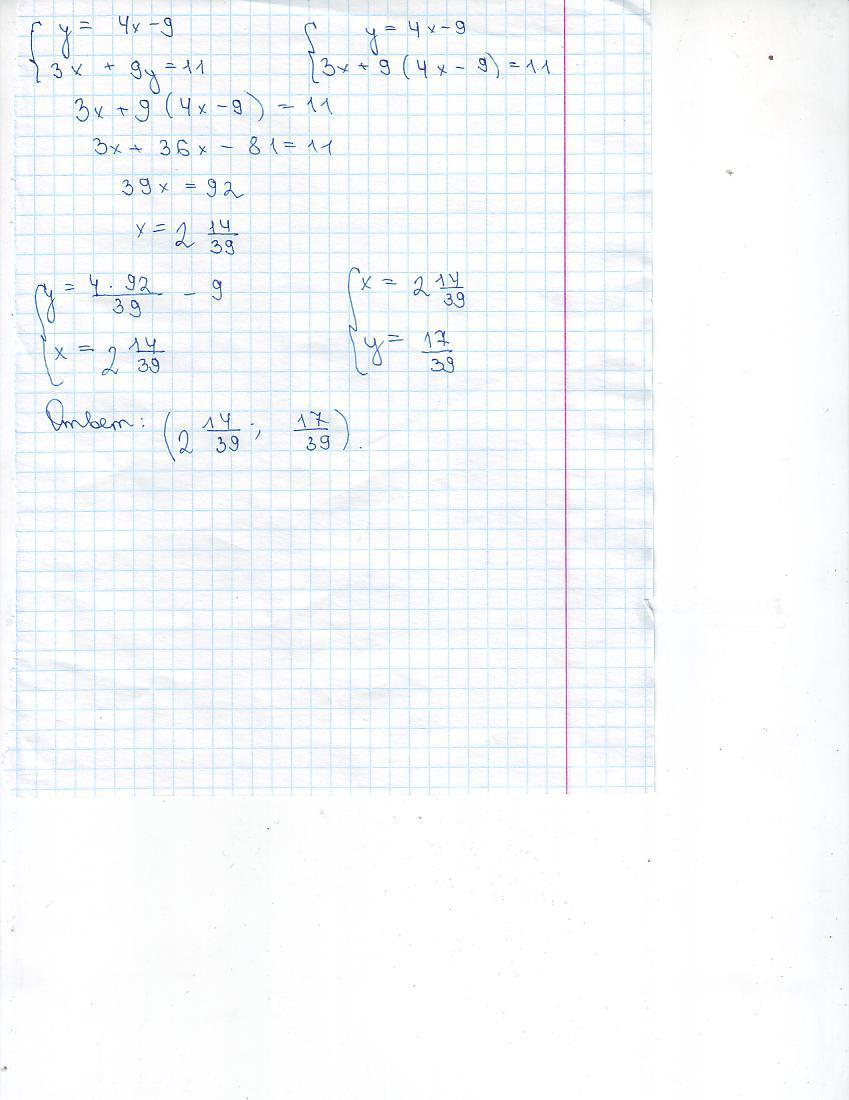 { y = 4x - 9 { y = 4x - 9
{ 3x + 9y = 11 { 3x + 9 (4x - 9) = 11
3x + 9 (4x - 9) = 11
3x + 36x - 81 = 11
39x = 92
x = 2 14/39
{ y = 4 · 92/39 - 9 { x = 2 14/39
{ x = 2 14/39 { y = 17/39
Ответ: (2 14/39; 17/39).